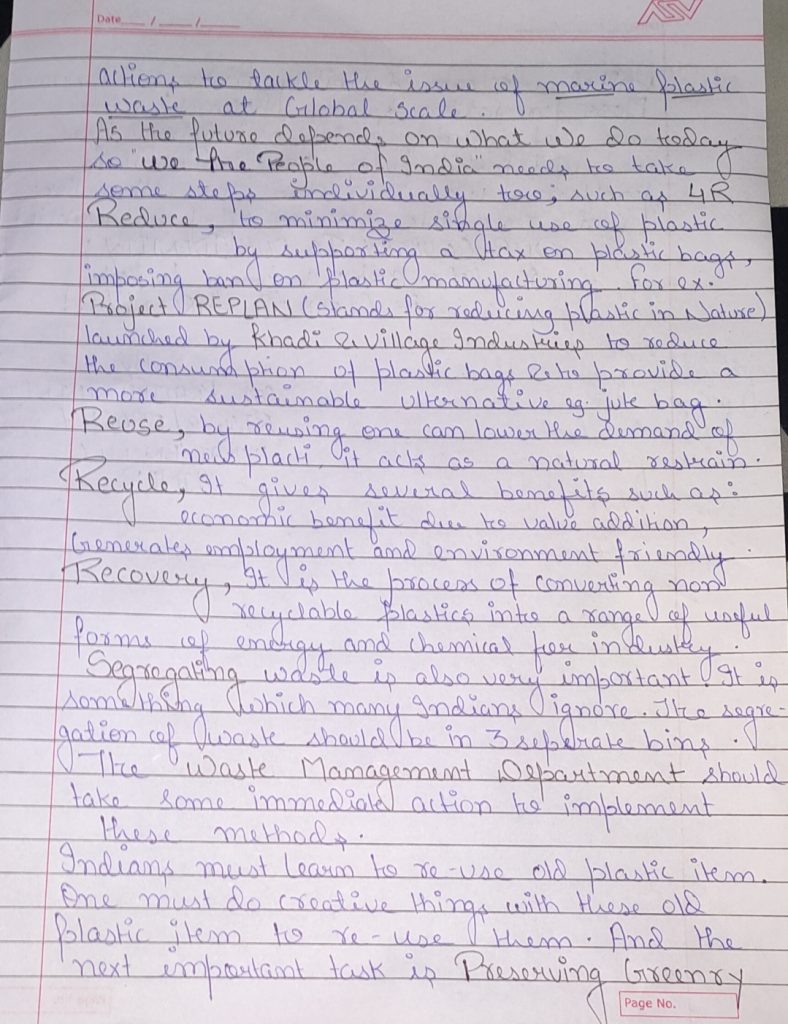 Date
actions to tackle the issue of marine plastic
waste at Global Scale.
As the future depends on what we do today
so "We the People of India" needs to take
some steps individually too; such as 4R
Reduce, to minimize single use of plastic
by supporting a tax on plastic bags,
imposing ban on plastic manufacturing. For ex.
Project REPLAN (stands for reducing plastic in Nature)
launched by Khadi & Village Industries to reduce
the consumption of plastic bags & to provide a
more sustainable alternative eg. jute bag.
Reuse, by reusing one can lower the demand of
new placti, it acts as a natural restrain.
Recycle, It gives several benefits such as:
economic benefit due to value addition,
Generates employment and environment friendly.
Recovery, It is the process of converting non
recyclable plastics into a range of useful
forms of energy and chemical for industry.
Segregating waste is also very important. It is
something which many Indians ignore. The segre-
gation of waste should be in 3 seperate bins.
The Waste Management Department should
take some immediate action to implement
these methods.
Indians must learn to re-use old plastic item.
One must do creative things with these old
plastic item to re-use them. And the
next important task is Preserving Greenry
Page No.